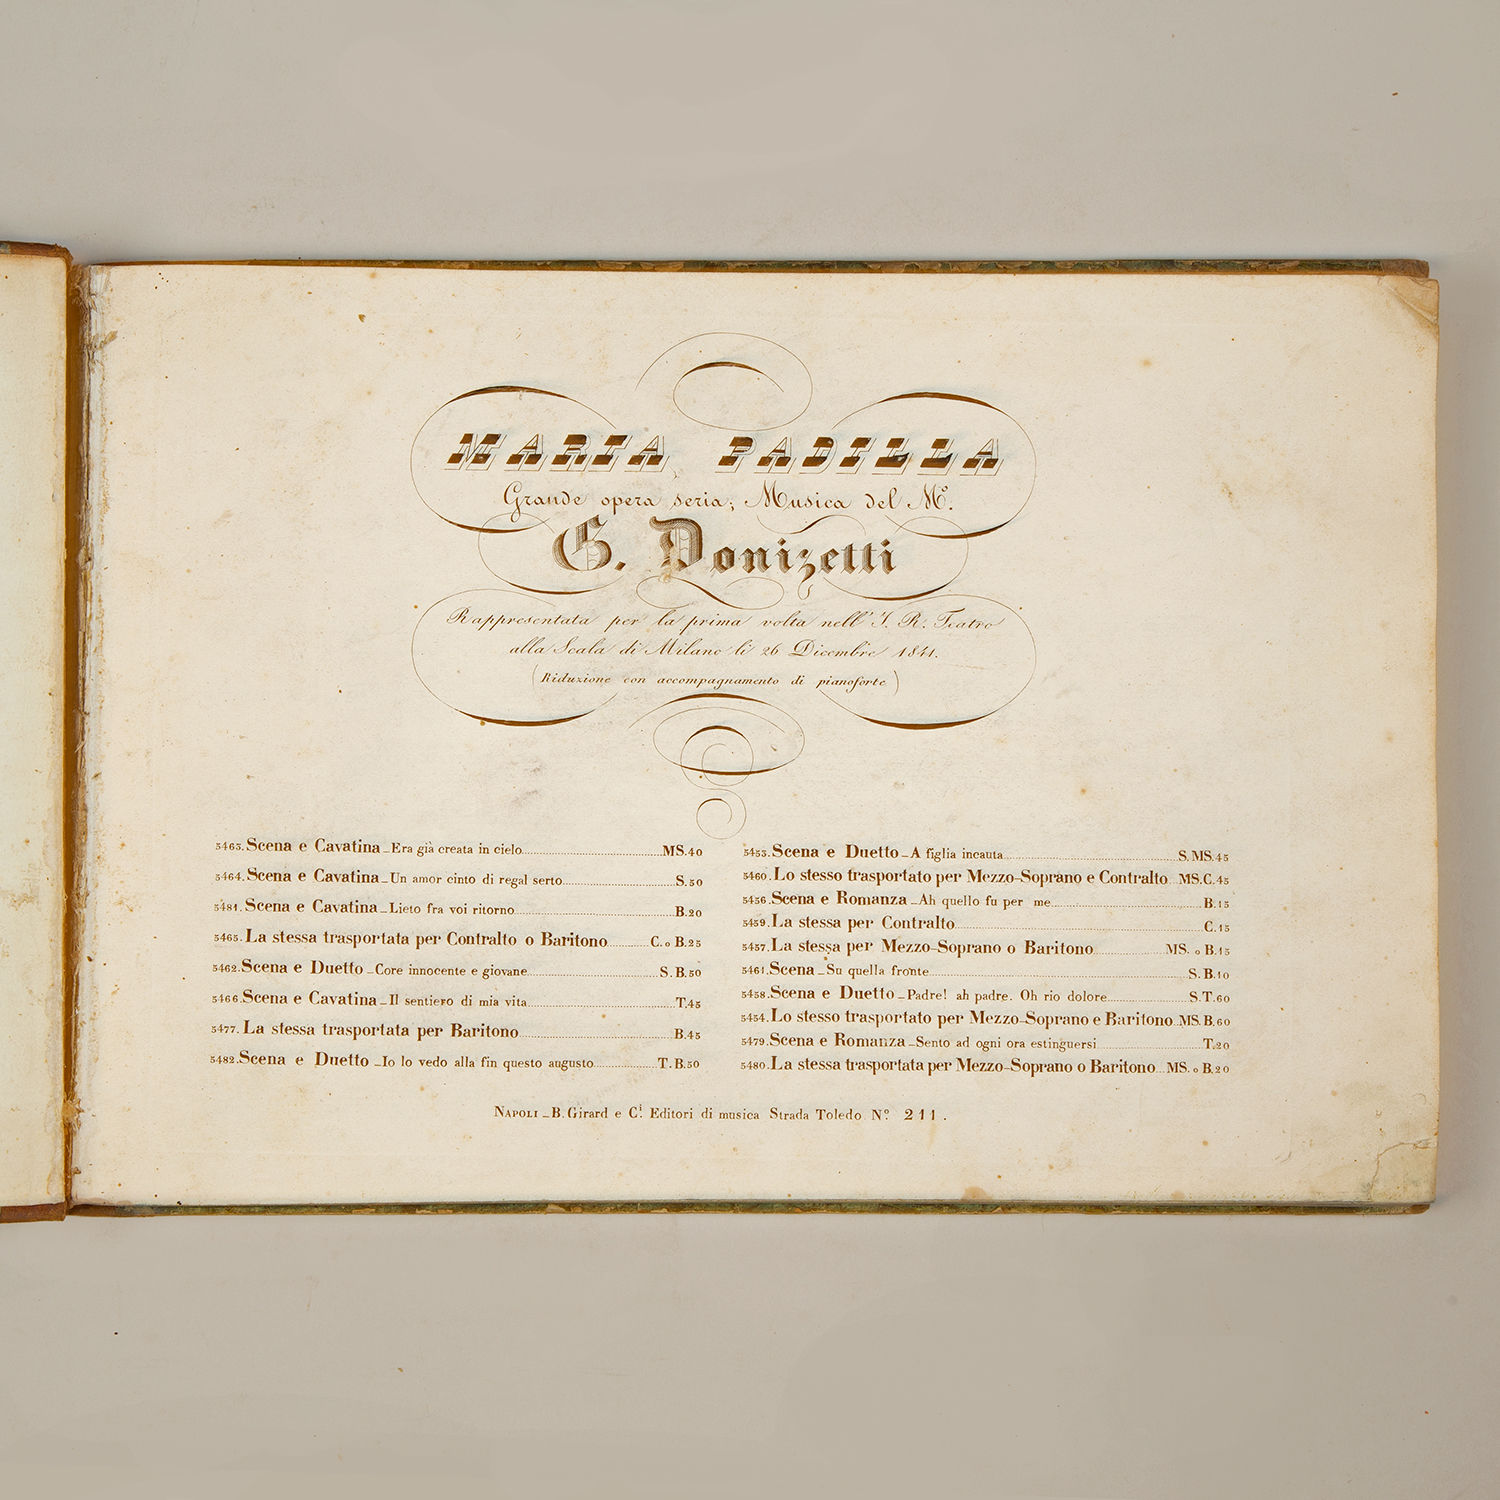 MARIA PADILLA
Grande opera seria; Musica del Mº.
G. Donizetti
Rappresentata per la prima volta nell' I. R. Teatro
alla Scala di Milano li 26 Dicembre 1841.
(Riduzione con accompagnamento di pianoforte)
5463. Scena e Cavatina _ Era già creata in cielo MS. 40
5464. Scena e Cavatina _ Un amor cinto di regal serto S. 50
5481. Scena e Cavatina _ Lieto fra voi ritorno B. 20
5465. La stessa trasportata per Contralto o Baritono C. o B. 25
5462. Scena e Duetto _ Core innocente e giovane S. B. 50
5466. Scena e Cavatina _ Il sentiero di mia vita T. 45
5477. La stessa trasportata per Baritono B. 45
5482. Scena e Duetto _ Io lo vedo alla fin questo augusto T. B. 50
5453. Scena e Duetto _ A figlia incauta S. MS. 45
5460. Lo stesso trasportato per Mezzo-Soprano e Contralto MS. C. 45
5456. Scena e Romanza _ Ah quello fu per me B. 15
5459. La stessa per Contralto C. 15
5457. La stessa per Mezzo-Soprano o Baritono MS. o B. 15
5461. Scena _ Su quella fronte S. B. 10
5458. Scena e Duetto _ Padre! ah padre. Oh rio dolore S. T. 60
5454. Lo stesso trasportato per Mezzo-Soprano e Baritono MS. B. 60
5479. Scena e Romanza _ Sento ad ogni ora estinguersi T. 20
5480. La stessa trasportata per Mezzo-Soprano o Baritono MS. o B. 20
NAPOLI _ B. Girard e Ci. Editori di musica Strada Toledo Nº. 211.